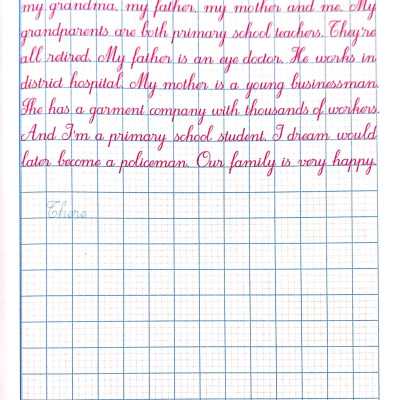 my grandma, my father, my mother and me. My
grandparents are both primary school teachers. They're
all retired. My father is an eye doctor. He works in
district hospital. My mother is a young businessman.
She has a garment company with thousands of workers.
And I'm a primary school student. I dream would
later become a policeman. Our family is very happy.
There